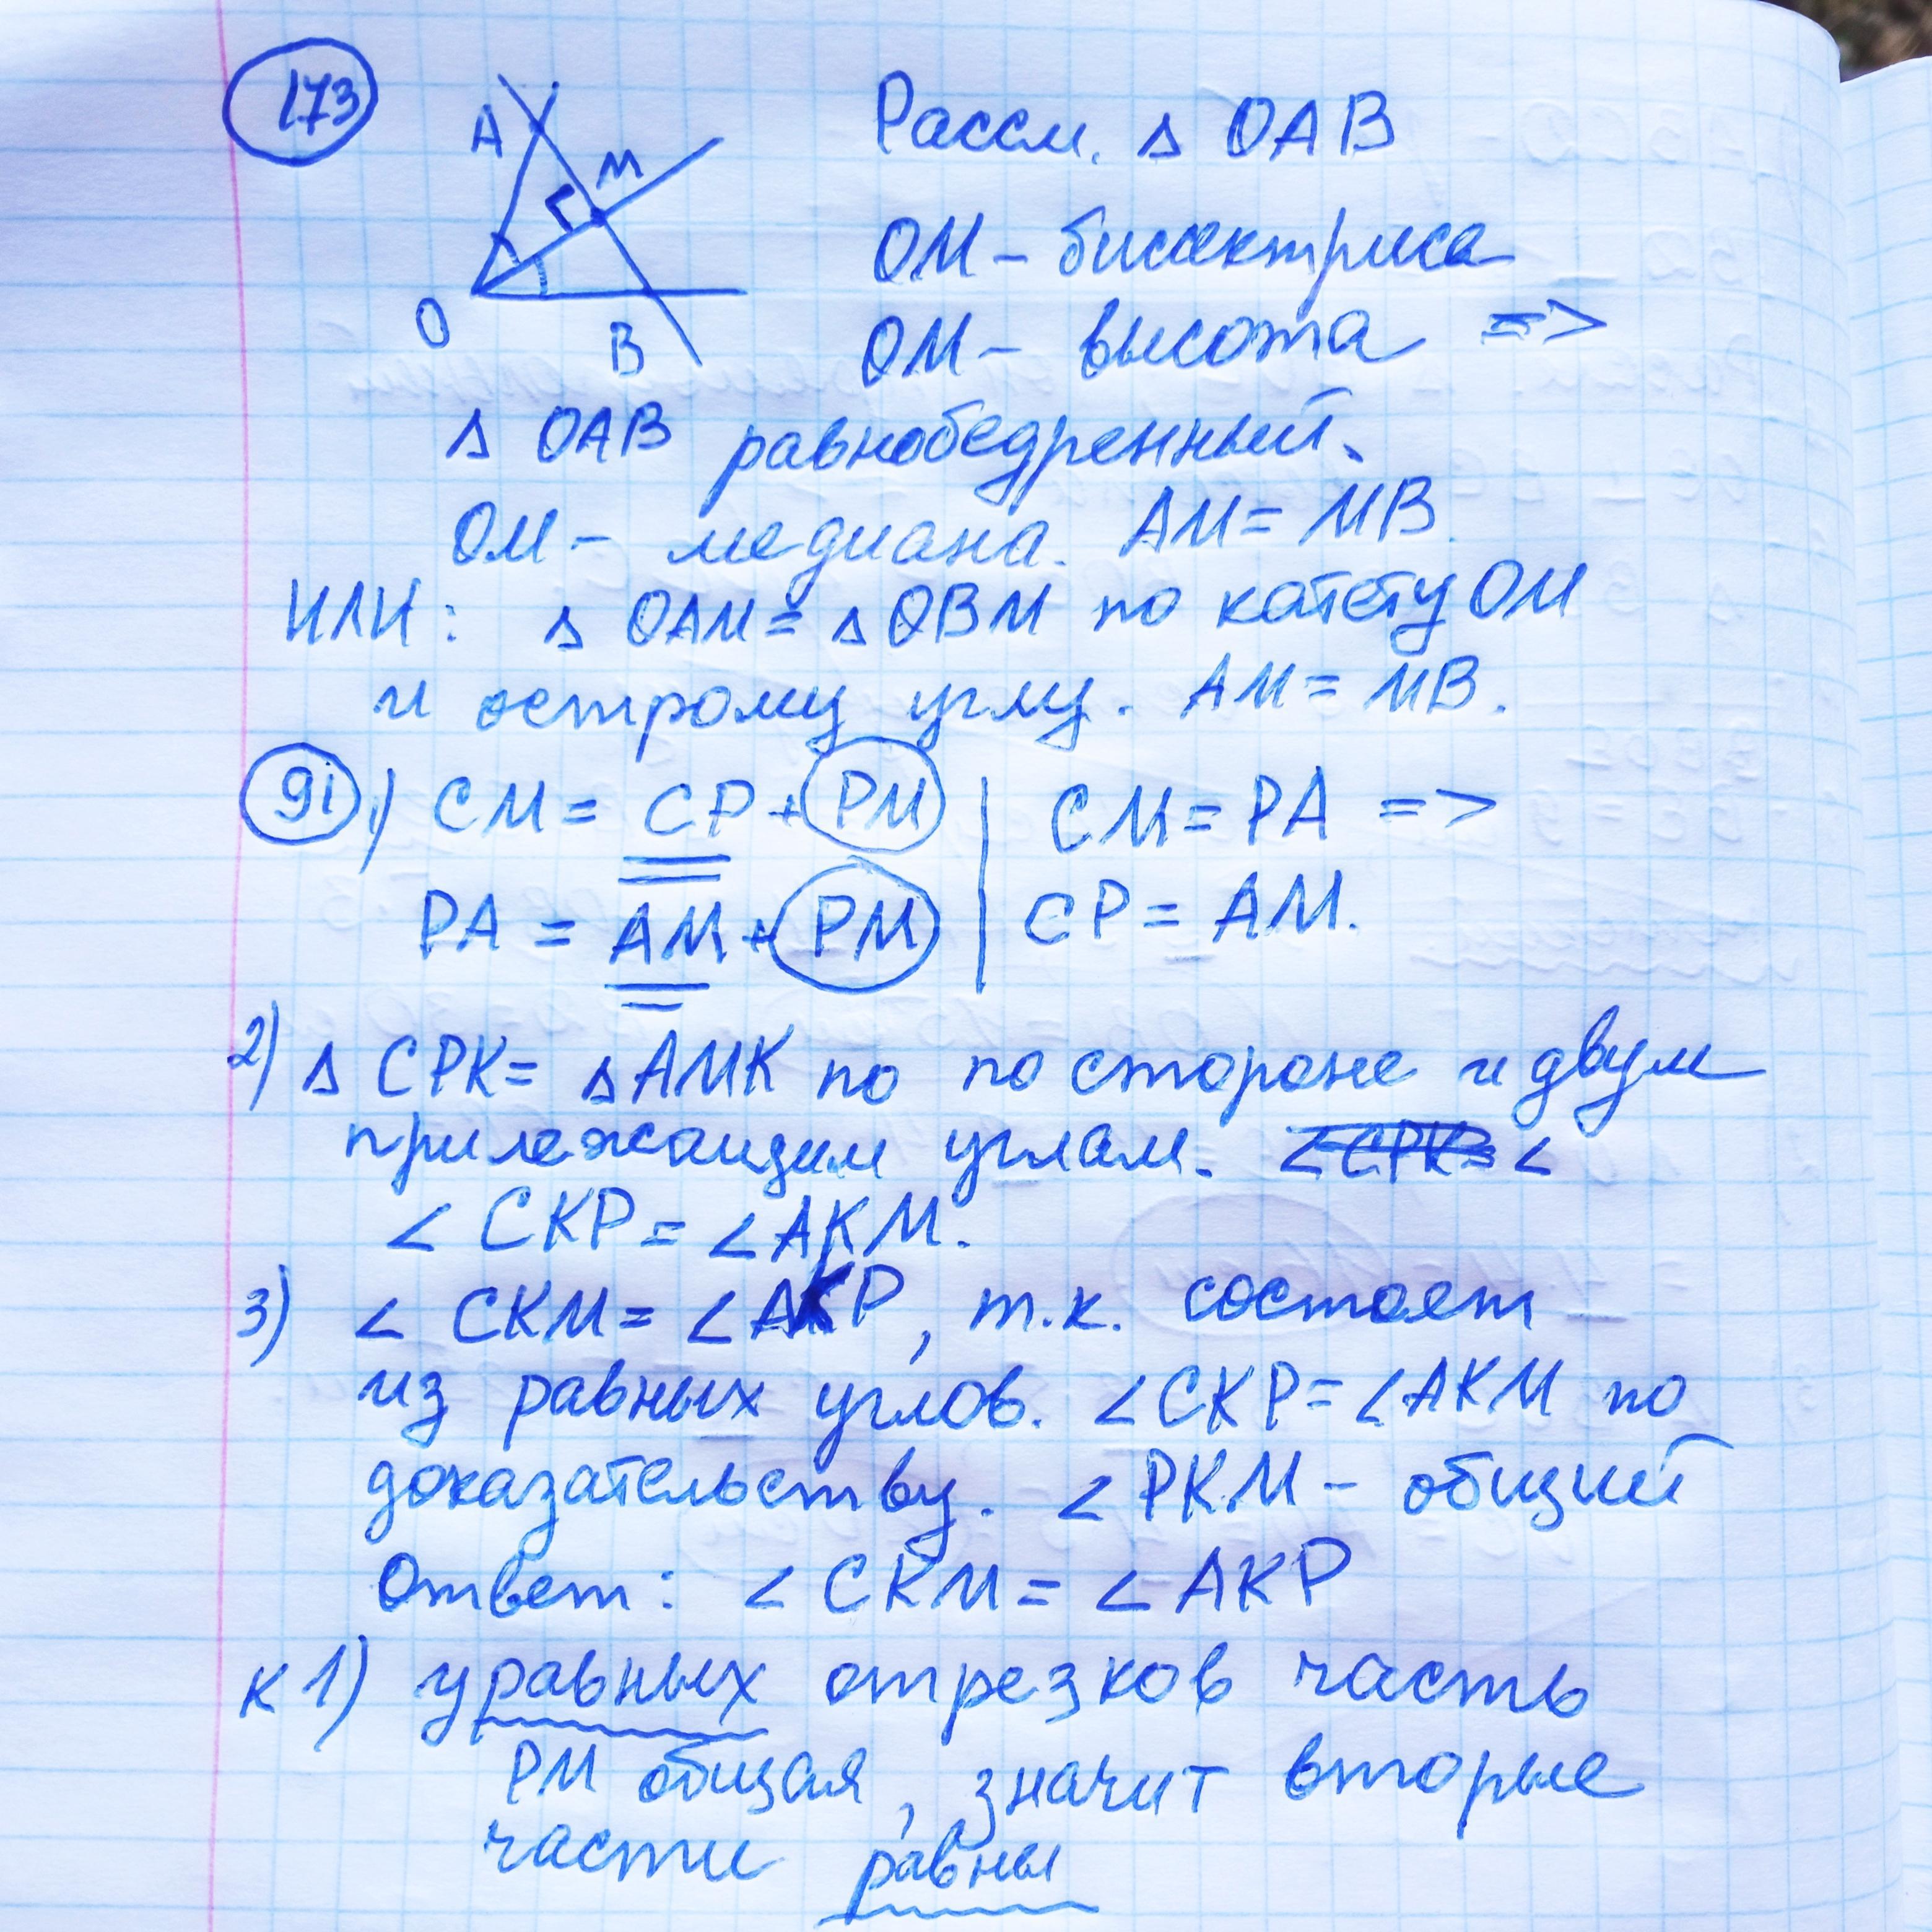 173
A
M
O
B
Рассм. Δ OAB
OM – биссектриса
OM – высота =>
Δ OAB равнобедренный.
OM – медиана. AM = MB.
ИЛИ: Δ OAM = Δ OBM по катету OM
и острому углу. AM = MB.
91 1) CM = CP + PM | CM = PA =>
PA = AM + PM | CP = AM.
2) Δ CPK = Δ AMK по по стороне и двум
прилежащим углам. <CPK= <
< CKP = < AKM.
3) < CKM = < AKP, т.к. состоят
из равных углов. < CKP = < AKM по
доказательству. < PKM – общий
Ответ: < CKM = < AKP
к 1) у равных отрезков часть
PM общая, значит вторые
части равны